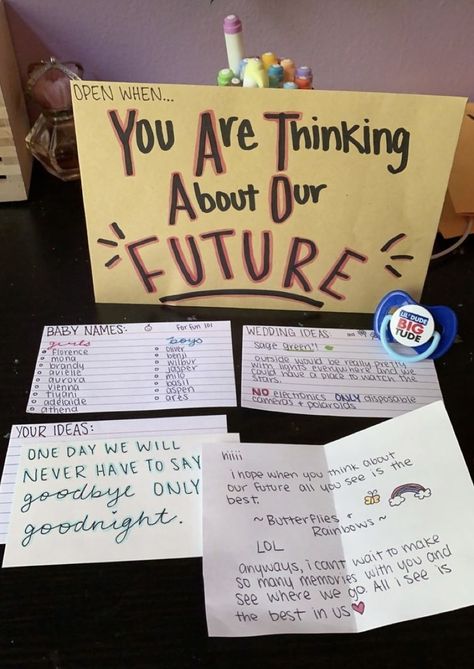 OPEN WHEN...
YOU ARE THINKING
ABOUT OUR
FUTURE
BABY NAMES:
For fun lol
girls
boys
florence
mona
brandy
avielle
aurora
vienna
tiyani
adelaide
athena
oliver
benji
wilbur
jasper
milo
basil
aspen
ares
WEDDING IDEAS:
sage green!!
outside would be really pretty
with lights everywhere and we
could have a place to watch the
stars.
NO electronics ONLY disposable
cameras + polaroids
LIL' DUDE
BIG
TUDE
YOUR IDEAS:
ONE DAY WE WILL
NEVER HAVE TO SAY
goodbye ONLY
goodnight.
hiiii
i hope when you think about
our future all you see is the
best.
~ Butterflies +
Rainbows ~
LOL
anyways, i cant wait to make
so many memories with you and
see where we go. All i see is
the best in us